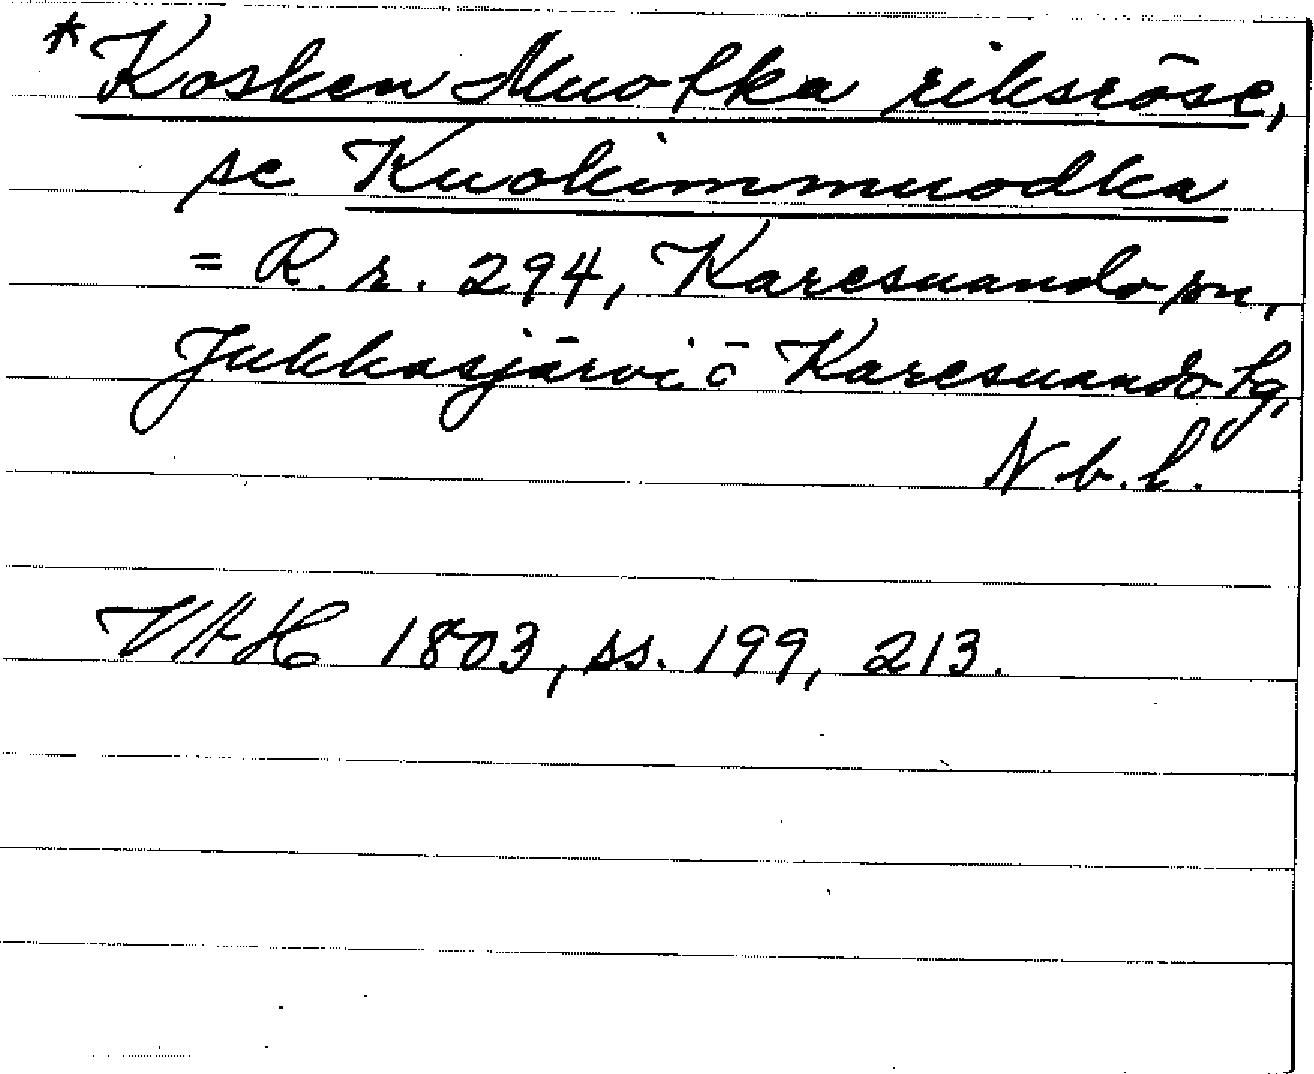 *Kosken Muotka riksröse,
se Kuokimmuodka
= R. r. 294, Karesuando sn,
Jukkasjärvi o Karesuando tg,
N b. l.
VAH 1803, ss. 199, 213.